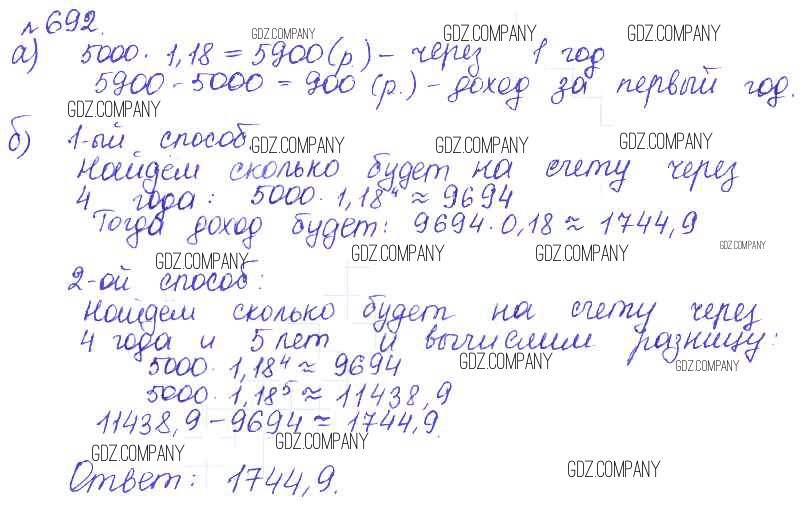 №692.
GDZ.COMPANY GDZ.COMPANY GDZ.COMPANY
а) 5000 · 1,18 = 5900 (р.) – через 1 год
5900 – 5000 = 900 (р.) – доход за первый год.
GDZ.COMPANY
б) 1-ый способ.
GDZ.COMPANY GDZ.COMPANY GDZ.COMPANY
Найдём сколько будет на счету через
4 года: 5000 · 1,18⁴ ≈ 9694
Тогда доход будет: 9694 · 0,18 ≈ 1744,9
GDZ.COMPANY GDZ.COMPANY GDZ.COMPANY GDZ.COMPANY
2-ой способ:
Найдём сколько будет на счету через
4 года и 5 лет и вычислим разницу:
5000 · 1,18⁴ ≈ 9694
GDZ.COMPANY GDZ.COMPANY
5000 · 1,18⁵ ≈ 11438,9
11438,9 – 9694 ≈ 1744,9.
GDZ.COMPANY GDZ.COMPANY GDZ.COMPANY
Ответ: 1744,9.